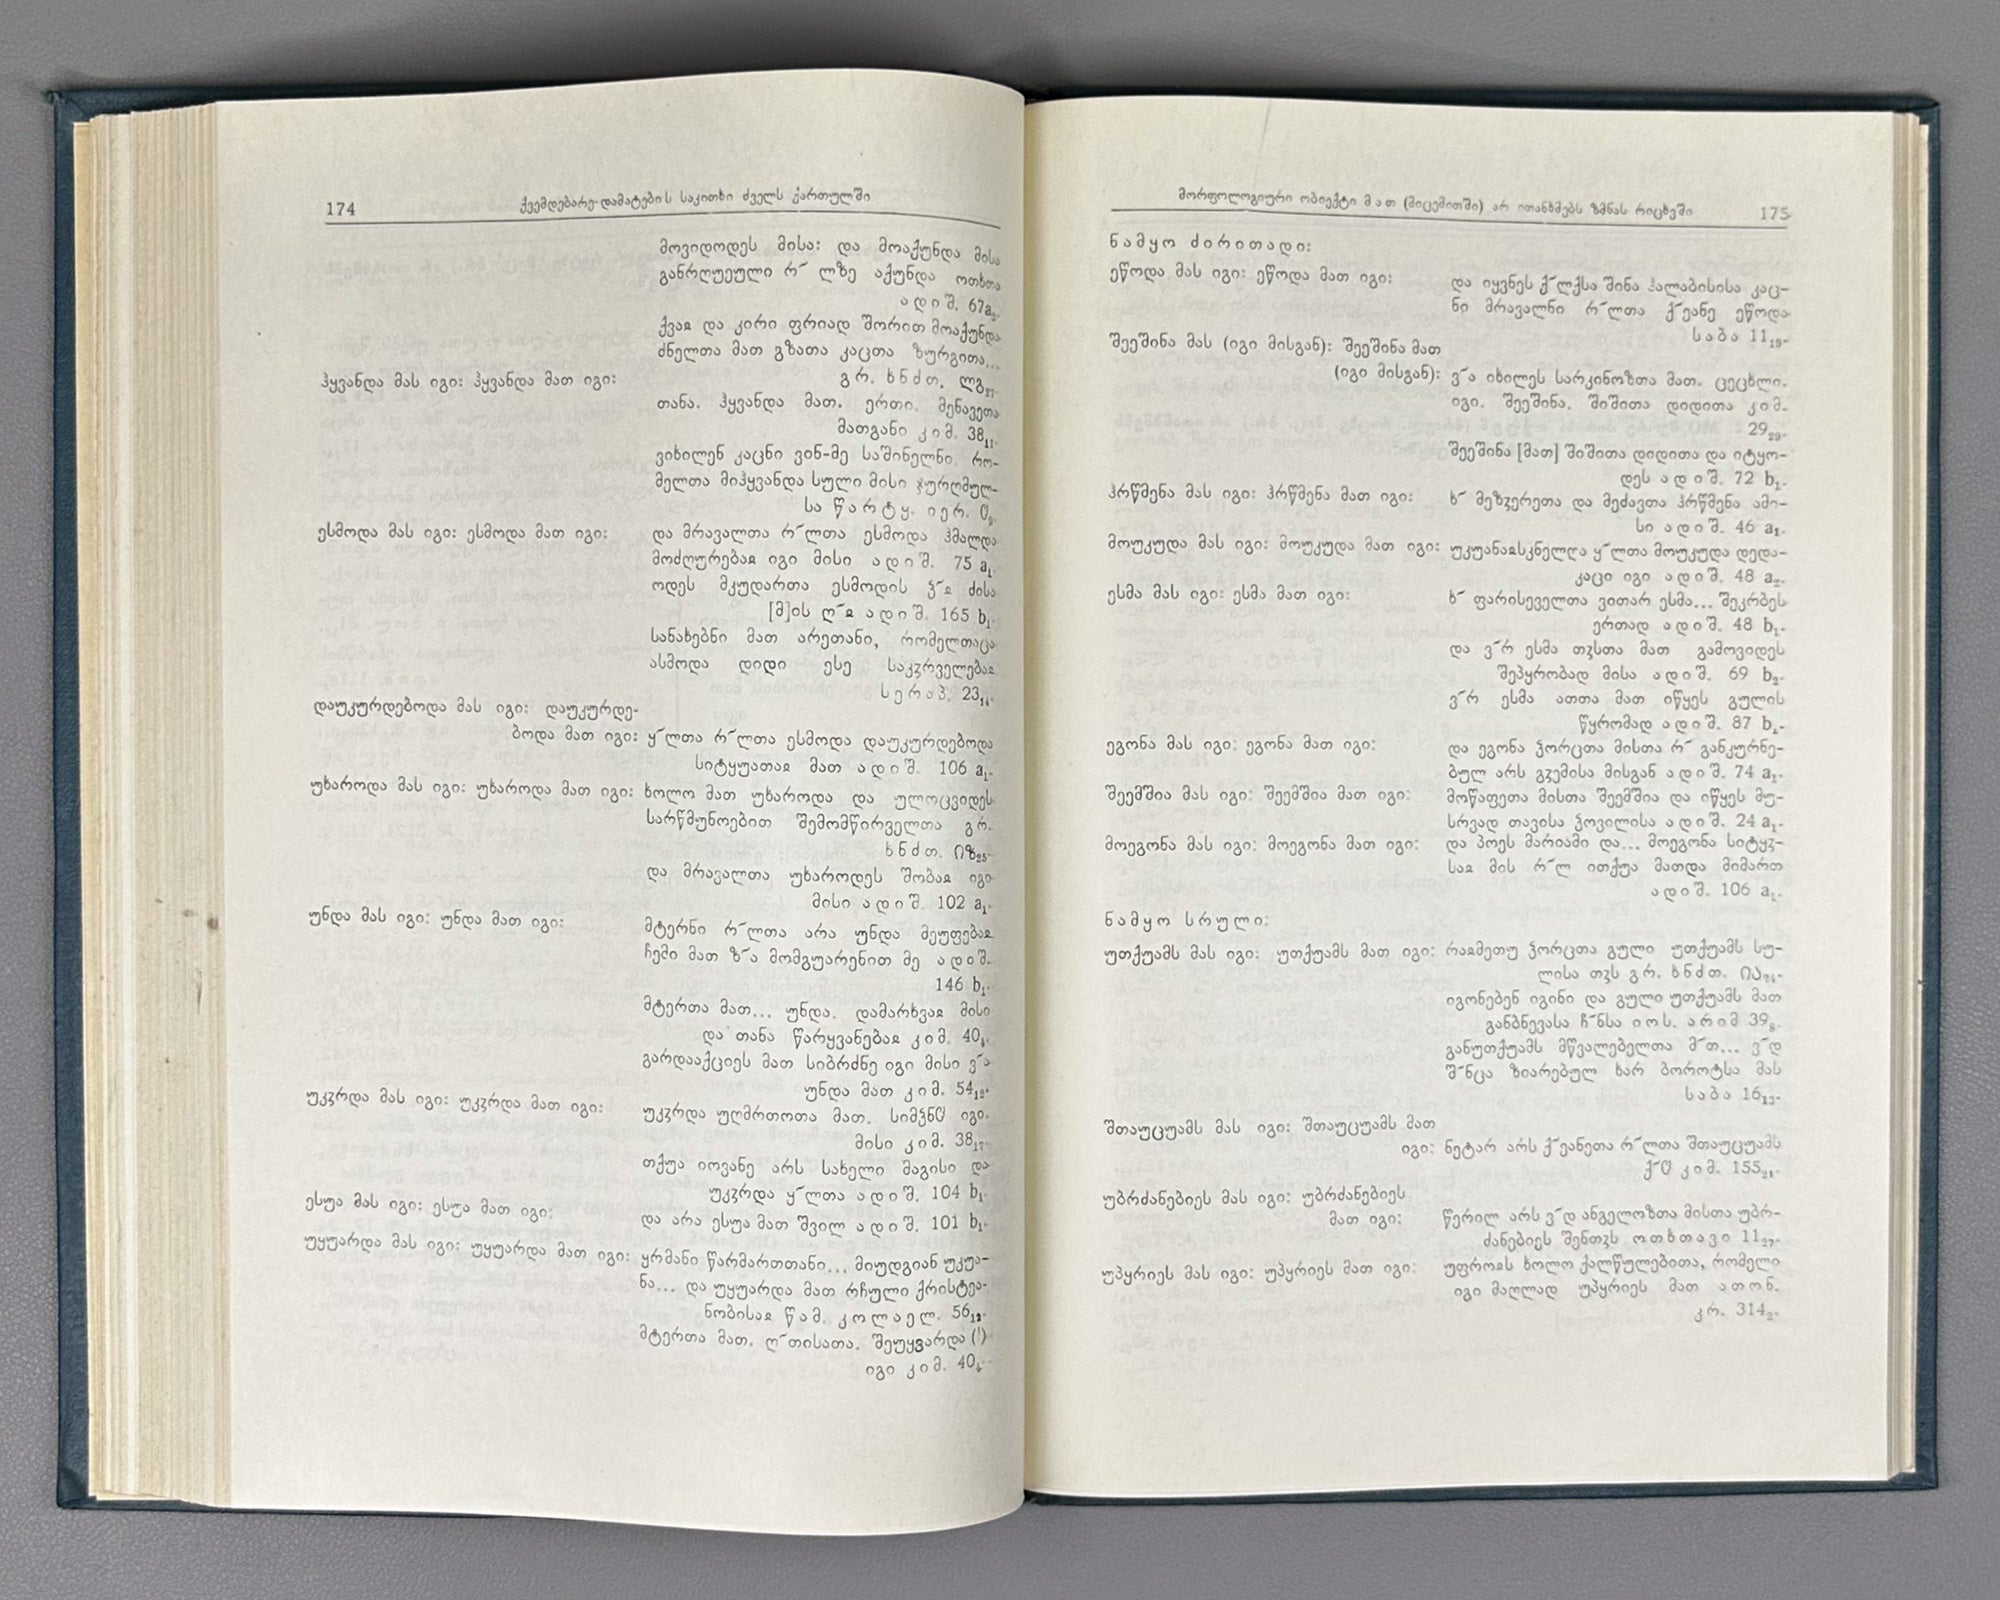 174 ქვემდებარე-დამატების საკითხი ძველს ქართულში
მოვიდოდეს მისა: და მოაქუნდა მისა
განრღუეული რ˜ ლზე აქუნდა ოთხთა
ადიშ. 67a₂.
ქვაჲ და კირი ფრიად შორით მოაქუნდა
ძნელთა მათ გზათა კაცთა ზურგითა...
ჰყვანდა მას იგი: ჰყვანდა მათ იგი: გრ. ხნძთ. ლგ₂₇.
თანა. ჰყვანდა მათ. ერთი. მენავეთა
მათგანი კიმ. 38₁₁.
ვიხილენ კაცნი ვინ-მე საშინელნი. რო-
მელთა მიჰყვანდა სული მისი ჯურღმულ-
სა წარტყ. იერ.
ესმოდა მას იგი: ესმოდა მათ იგი: და მრავალთა რ˜ლთა ესმოდა ჰმალდა
მოძღურებაჲ იგი მისი ადიშ. 75 a₁.
ოდეს მკუდართა ესმოდის ჴ˜ჲ ძისა
[მ]ის ღ˜ჲ ადიშ. 165 b₁.
სანახებნი მათ არეთანი, რომელთაცა
ასმოდა დიდი ესე საკჳრველებაჲ
სერაპ. 23₁₄.
დაუკურდებოდა მას იგი: დაუკურდე-
ბოდა მათ იგი: ყ˜ლთა რ˜ლთა ესმოდა დაუკურდებოდა
სიტყუათაჲ მათ ადიშ. 106 a₁.
უხაროდა მას იგი: უხაროდა მათ იგი: ხოლო მათ უხაროდა და ულოცვიდეს
სარწმუნოებით შემომწირველთა გრ.
ხნძთ. Ⴈზ₂₅.
და მრავალთა უხაროდეს შობაჲ იგი
მისი ადიშ. 102 a₁.
უნდა მას იგი: უნდა მათ იგი: მტერნი რ˜ლთა არა უნდა მეუფებაჲ
ჩემი მათ ზ˜ა მომგუარენით მე ადიშ.
146 b₁.
მტერთა მათ... უნდა. დამარხვაჲ მისი
და თანა წარყვანებაჲ კიმ. 40₄.
გარდააქციეს მათ სიბრძნე იგი მისი ვ˜ა
უნდა მათ კიმ. 54₁₂.
უკჳრდა მას იგი: უკჳრდა მათ იგი: უკჳრდა უღმრთოთა მათ. სიმჴნჱ იგი.
მისი კიმ. 38₁₇.
თქუა იოვანე არს სახელი მაგისი და
უკჳრდა ყ˜ლთა ადიშ. 104 b₁.
ესუა მას იგი: ესუა მათ იგი: და არა ესუა მათ შვილ ადიშ. 101 b₁.
უყუარდა მას იგი: უყუარდა მათ იგი: ყრმანი წარმართთანი... მიუდგიან უკუა-
ნა... და უყუარდა მათ რჩული ქრისტეა-
ნობისაჲ წამ. კოლაელ. 56₁₂.
მტერთა მათ. ღ˜თისათა. შეუყვარდა (!)
იგი კიმ. 40₆.
მორფოლოგიური ობიექტი მათ (მიცემითში) არ ითანხმებს ზმნას რიცხვში 175
ნამყო ძირითადი:
ეწოდა მას იგი: ეწოდა მათ იგი: და იყვნეს ქ˜ლქსა შინა ჰალაბისისა კაც-
ნი მრავალნი რ˜ლთა ქ˜ეანე ეწოდა
საბა 11₁₉.
შეეშინა მას (იგი მისგან): შეეშინა მათ
(იგი მისგან): ვ˜ა იხილეს სარკინოზთა მათ. ცეცხლი.
იგი. შეეშინა. შიშითა დიდითა კიმ.
29₂₉.
შეეშინა [მათ] შიშითა დიდითა და იტყო-
დეს ადიშ. 72 b₁.
ჰრწმენა მას იგი: ჰრწმენა მათ იგი: ხ˜ მეზჳერეთა და მეძავთა ჰრწმენა ამი-
სი ადიშ. 46 a₁.
მოუკუდა მას იგი: მოუკუდა მათ იგი: უკუანაჲსკნელღა ყ˜ლთა მოუკუდა დედა-
კაცი იგი ადიშ. 48 a₂.
ესმა მას იგი: ესმა მათ იგი: ხ˜ ფარისეველთა ვითარ ესმა... შეკრბეს
ერთად ადიშ. 48 b₁.
და ვ˜რ ესმა თჳსთა მათ გამოვიდეს
შეპყრობად მისა ადიშ. 69 b₂.
ვ˜რ ესმა ათთა მათ იწყეს გულის
წყრომად ადიშ. 87 b₁.
ეგონა მას იგი: ეგონა მათ იგი: და ეგონა ჴორცთა მისთა რ˜ განკურნე-
ბულ არს გჳემისა მისგან ადიშ. 74 a₁.
შეემშია მას იგი: შეემშია მათ იგი: მოწაფეთა მისთა შეემშია და იწყეს მუ-
სრვად თავისა ჴოვილისა ადიშ. 24 a₁.
მოეგონა მას იგი: მოეგონა მათ იგი: და პოეს მარიამი და... მოეგონა სიტყჳ-
საჲ მის რ˜ლ ითქუა მათდა მიმართ
ადიშ. 106 a₁.
ნამყო სრული:
უთქუამს მას იგი: უთქუამს მათ იგი: რაჲმეთუ ჴორცთა გული უთქუამს სუ-
ლისა თჳს გრ. ხნძთ.
იგონებენ იგინი და გული უთქუამს მათ
განბნევასა ჩ˜ნსა იოს. არიმ 39₈.
განუთქუამს მწვალებელთა მ˜თ... ვ˜დ
შ˜ნცა ზიარებულ ხარ ბოროტსა მას
საბა 16₁₃.
შთაუცუამს მას იგი: შთაუცუამს მათ
იგი: ნეტარ არს ქ˜ეანეთა რ˜ლთა შთაუცუამს
ქ˜Ⴡ კიმ. 155₂₁.
უბრძანებიეს მას იგი: უბრძანებიეს
მათ იგი: წერილ არს ვ˜დ ანგელოზთა მისთა უბრ-
ძანებიეს შენთჳს ოთხთავი 11₂₇.
უპყრიეს მას იგი: უპყრიეს მათ იგი: უფროჲს ხოლო ქალწულებითა, რომელი
იგი მაღლად უპყრიეს მათ ათონ.
კრ. 314₂.